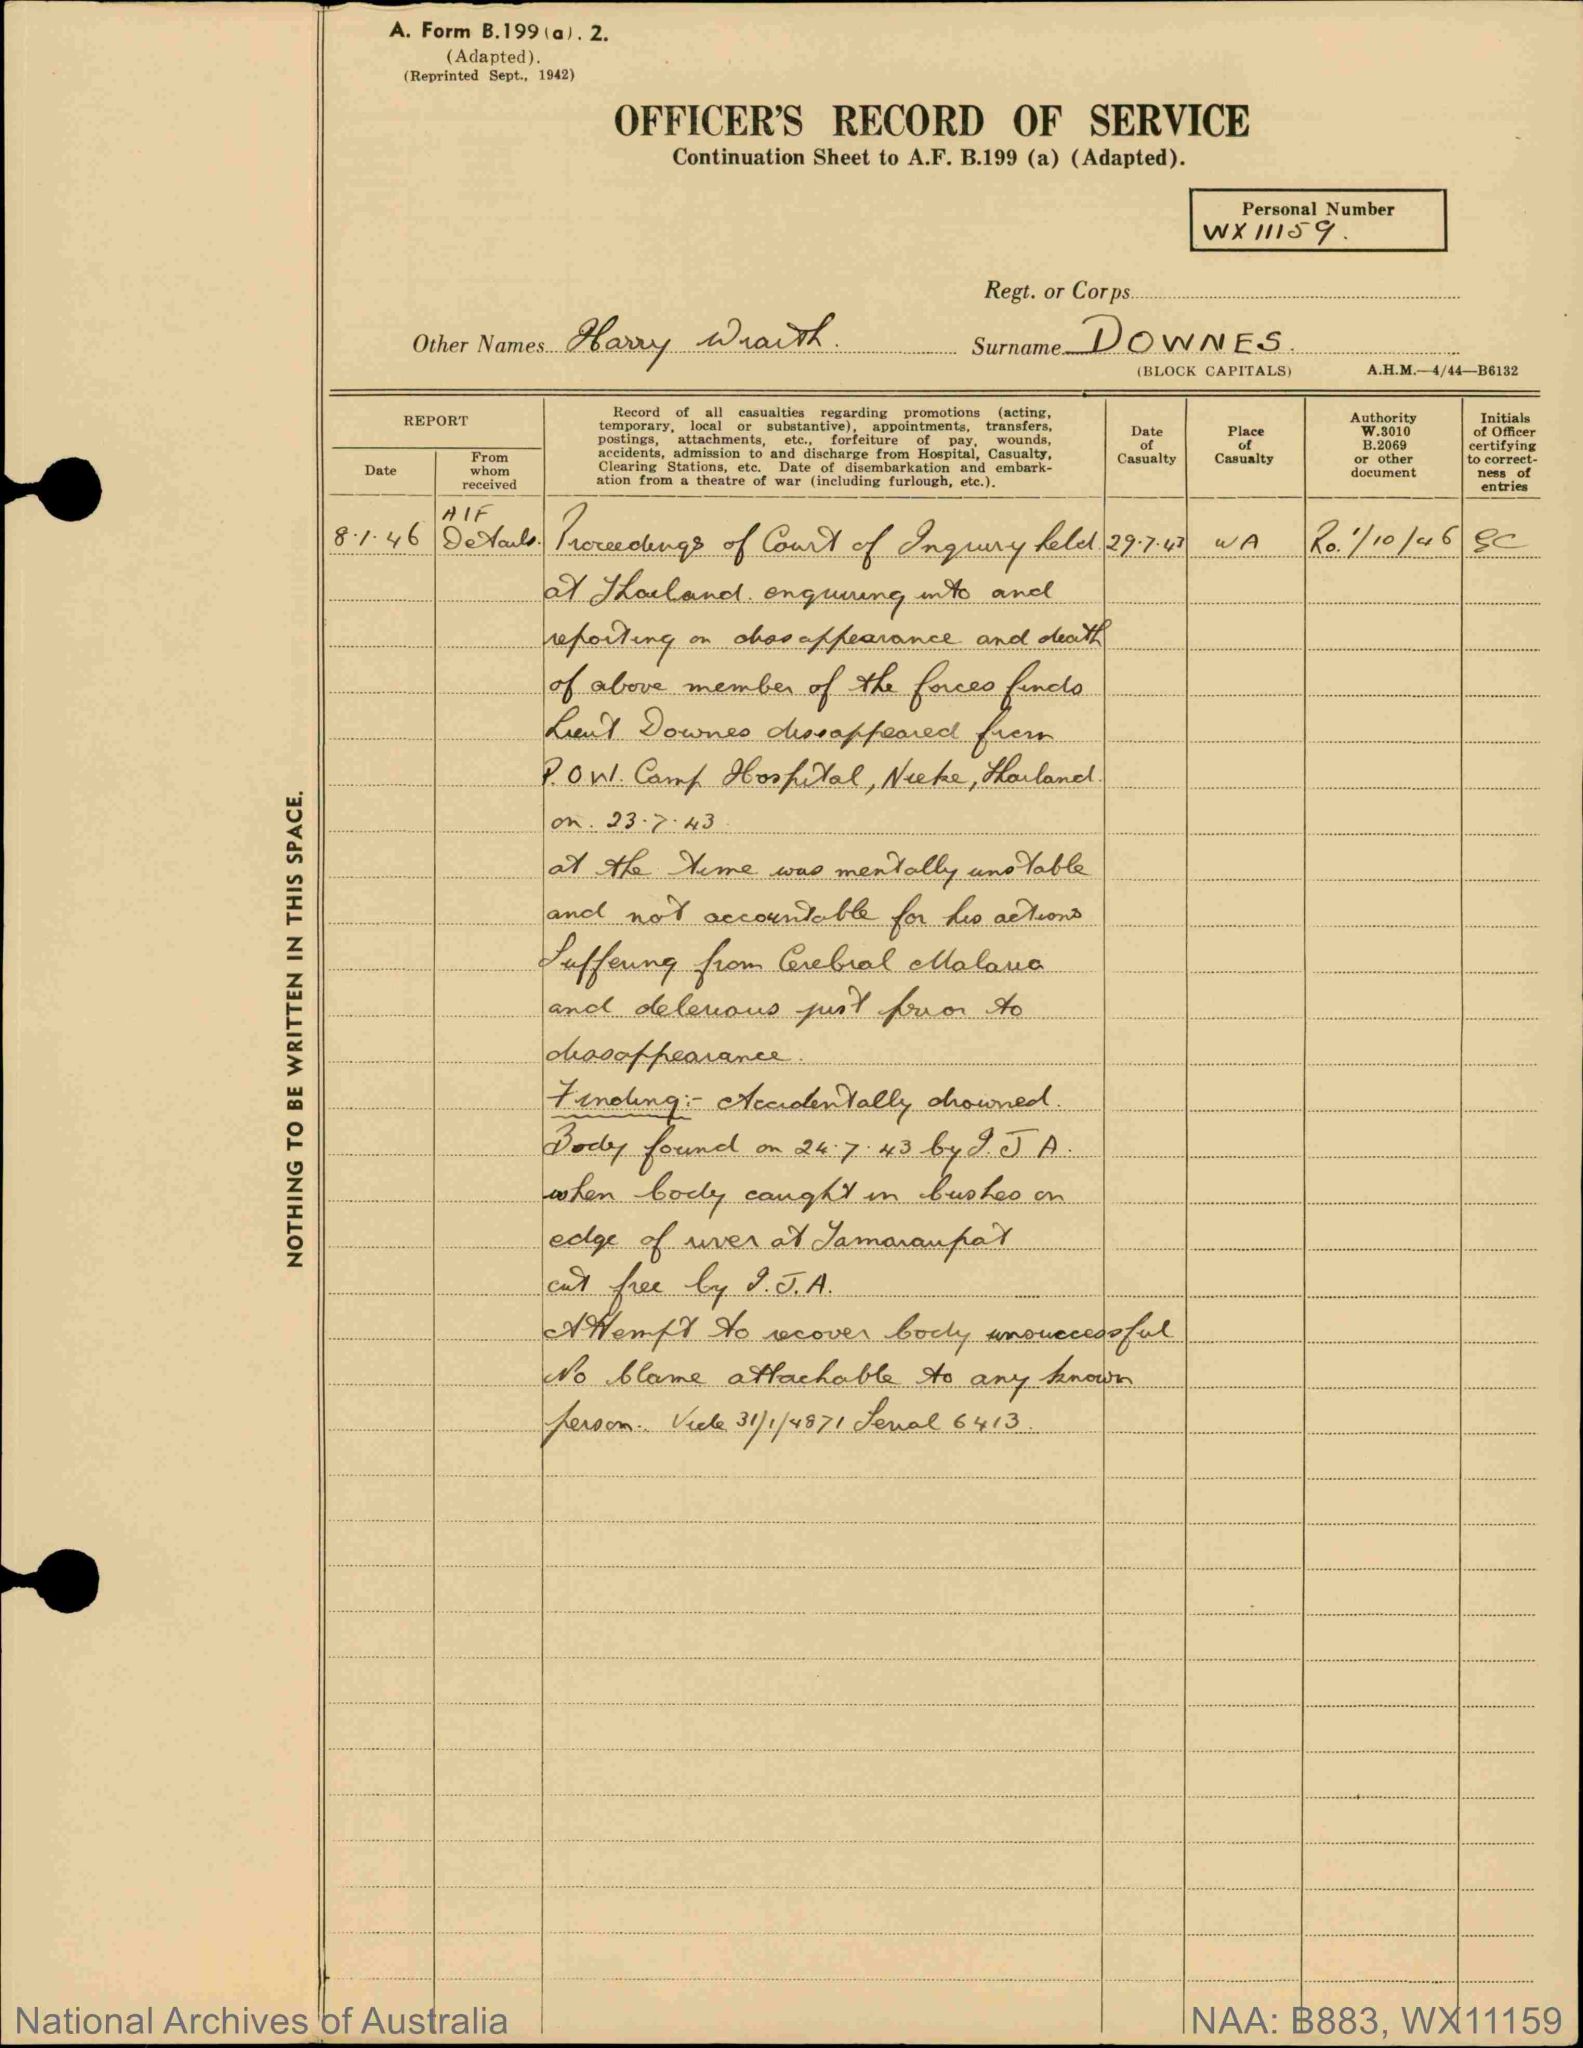 A. Form B.199 (a). 2.
(Adapted).
(Reprinted Sept., 1942)
OFFICER'S RECORD OF SERVICE
Continuation Sheet to A.F. B.199 (a) (Adapted).
Personal Number
WX11159.
Regt. or Corps
Other Names Harry Wraith. Surname DOWNES.
(BLOCK CAPITALS) A.H.M.—4/44—B6132
REPORT
Date
From
whom
received
Record of all casualties regarding promotions (acting,
temporary, local or substantive), appointments, transfers,
postings, attachments, etc., forfeiture of pay, wounds,
accidents, admission to and discharge from Hospital, Casualty,
Clearing Stations, etc. Date of disembarkation and embark-
ation from a theatre of war (including furlough, etc.).
Date
of
Casualty
Place
of
Casualty
Authority
W.3010
B.2069
or other
document
Initials
of Officer
certifying
to correct-
ness of
entries
AIF
8.1.46 Details. Proceedings of Court of Inquiry held 29.7.43 WA Ro. 1/10/46
at Thailand. enquiring into and
reporting on dissappearance and death
of above member of the forces finds
Lieut Downes dissappeared from
P.O.W. Camp Hospital, Nieke, Thailand.
on. 23.7.43
at the time was mentally unstable
and not accountable for his actions
Suffering from Cerebral Malaria
and delerious just prior to
dissappearance.
Finding:- Accidentally drowned.
Body found on 24.7.43 by I.J A.
when body caught in bushes on
edge of river at Tamaraupat
cut free by I.J.A.
Attempt to recover body unsuccessful
No blame attachable to any known
person. Vide 31/1/4871 Serial 6413.
NOTHING TO BE WRITTEN IN THIS SPACE.
National Archives of Australia
NAA: B883, WX11159